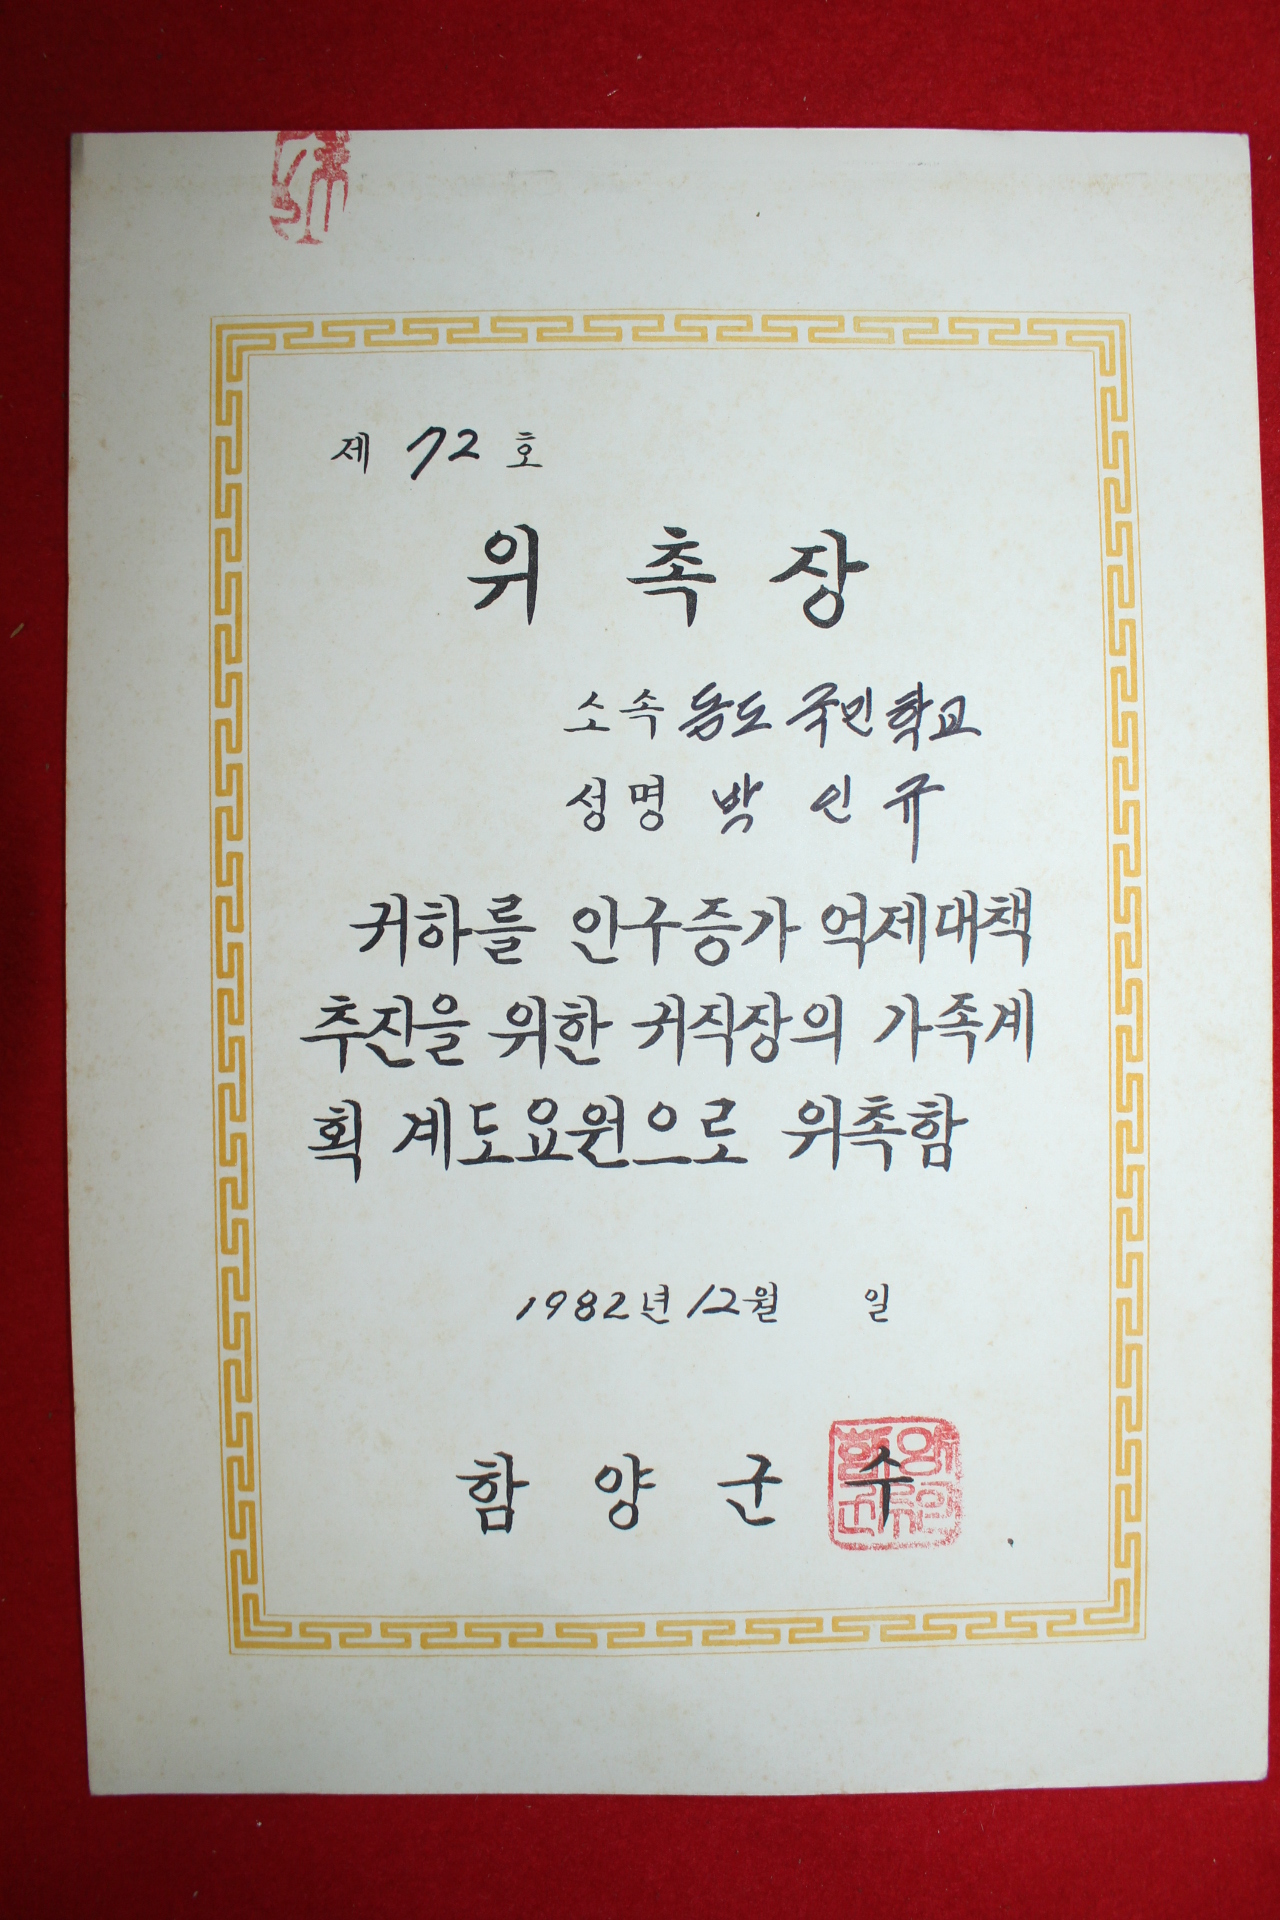 제 72 호
위 촉 장
소속 국민학교
성명 박 인 규
귀하를 인구증가 억제대책
추진을 위한 귀직장의 가족계
획 계도요원으로 위촉함
1982년 12월 일
함 양 군 수